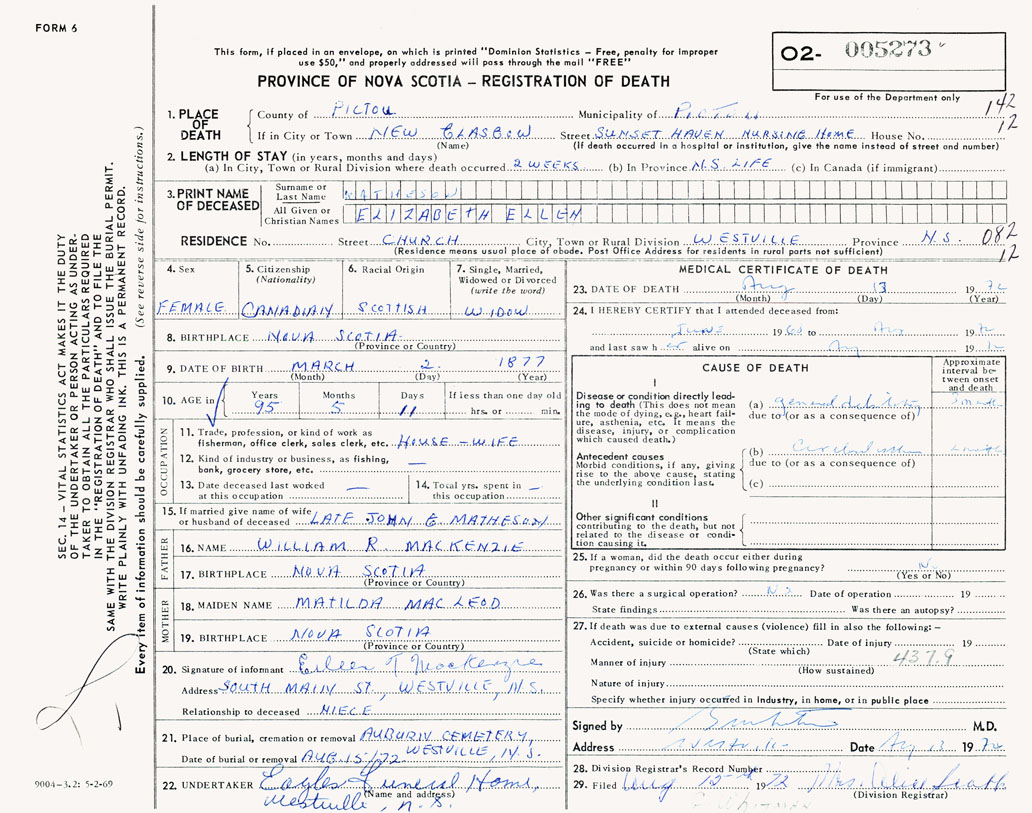 FORM 6
This form, if placed in an envelope, on which is printed "Dominion Statistics – Free, penalty for improper
use $50," and properly addressed will pass through the mail "FREE"
PROVINCE OF NOVA SCOTIA – REGISTRATION OF DEATH
O2- 005273
For use of the Department only
142
12
1. PLACE OF DEATH
County of PICTOU Municipality of PICTOU
If in City or Town NEW GLASGOW Street SUNSET HAVEN NURSING HOME House No.
(Name) (If death occurred in a hospital or institution, give the name instead of street and number)
2. LENGTH OF STAY (in years, months and days)
(a) In City, Town or Rural Division where death occurred 2 WEEKS (b) In Province N.S. LIFE (c) In Canada (if immigrant)
3. PRINT NAME OF DECEASED
Surname or Last Name MATHESON
All Given or Christian Names ELIZABETH ELLEN
RESIDENCE No. Street CHURCH City, Town or Rural Division WESTVILLE Province N.S. 082
(Residence means usual place of abode. Post Office Address for residents in rural parts not sufficient) 12
4. Sex FEMALE
5. Citizenship (Nationality) CANADIAN
6. Racial Origin SCOTTISH
7. Single, Married, Widowed or Divorced (write the word) WIDOW
8. BIRTHPLACE NOVA SCOTIA
(Province or Country)
9. DATE OF BIRTH MARCH 2 1877
(Month) (Day) (Year)
10. AGE in Years 95 Months 5 Days 11 If less than one day old hrs. or min.
OCCUPATION
11. Trade, profession, or kind of work as
fisherman, office clerk, sales clerk, etc. HOUSE-WIFE
12. Kind of industry or business, as fishing,
bank, grocery store, etc. —
13. Date deceased last worked
at this occupation —
14. Total yrs. spent in
this occupation —
15. If married give name of wife
or husband of deceased LATE JOHN G MATHESON
FATHER
16. NAME WILLIAM R. MACKENZIE
17. BIRTHPLACE NOVA SCOTIA
(Province or Country)
MOTHER
18. MAIDEN NAME MATILDA MACLEOD
19. BIRTHPLACE NOVA SCOTIA
(Province or Country)
20. Signature of informant Eileen T MacKenzie
Address SOUTH MAIN ST., WESTVILLE, N.S.
Relationship to deceased NIECE
21. Place of burial, cremation or removal AUBURN CEMETERY,
WESTVILLE, N.S.
Date of burial or removal AUG. 15/72
22. UNDERTAKER Eagles Funeral Home,
(Name and address)
Westville, N.S.
MEDICAL CERTIFICATE OF DEATH
23. DATE OF DEATH Aug 13 1972
(Month) (Day) (Year)
24. I HEREBY CERTIFY that I attended deceased from:
June 19 to Aug 1972
and last saw h alive on Aug 19
CAUSE OF DEATH
Approximate interval between onset and death
I
Disease or condition directly leading to death (This does not
mean the mode of dying, e.g., heart failure, asthenia, etc. It means the
disease, injury, or complication
which caused death.)
(a) general debility
due to (or as a consequence of)
Antecedent causes
Morbid conditions, if any, giving
rise to the above cause, stating
the underlying condition last.
(b)
due to (or as a consequence of)
(c)
II
Other significant conditions
contributing to the death, but not
related to the disease or condition causing it.
25. If a woman, did the death occur either during
pregnancy or within 90 days following pregnancy? No
(Yes or No)
26. Was there a surgical operation? No Date of operation 19
State findings Was there an autopsy?
27. If death was due to external causes (violence) fill in also the following: –
Accident, suicide or homicide? Date of injury 19
(State which)
Manner of injury 437.9
(How sustained)
Nature of injury
Specify whether injury occurred in Industry, in home, or in public place
Signed by M.D.
Address Westville Date Aug 13 1972
28. Division Registrar's Record Number
29. Filed Aug 15th 1972 Mrs.
(Division Registrar)
SEC. 14 – VITAL STATISTICS ACT MAKES IT THE DUTY
OF THE UNDERTAKER OR PERSON ACTING AS UNDER-
TAKER TO OBTAIN ALL THE PARTICULARS REQUIRED
IN THE "REGISTRATION OF DEATH" AND TO FILE THE
SAME WITH THE DIVISION REGISTRAR WHO SHALL ISSUE THE BURIAL PERMIT.
WRITE PLAINLY WITH UNFADING INK. THIS IS A PERMANENT RECORD.
Every item of information should be carefully supplied. (See reverse side for instructions.)
9004–3.2: 5-2-69